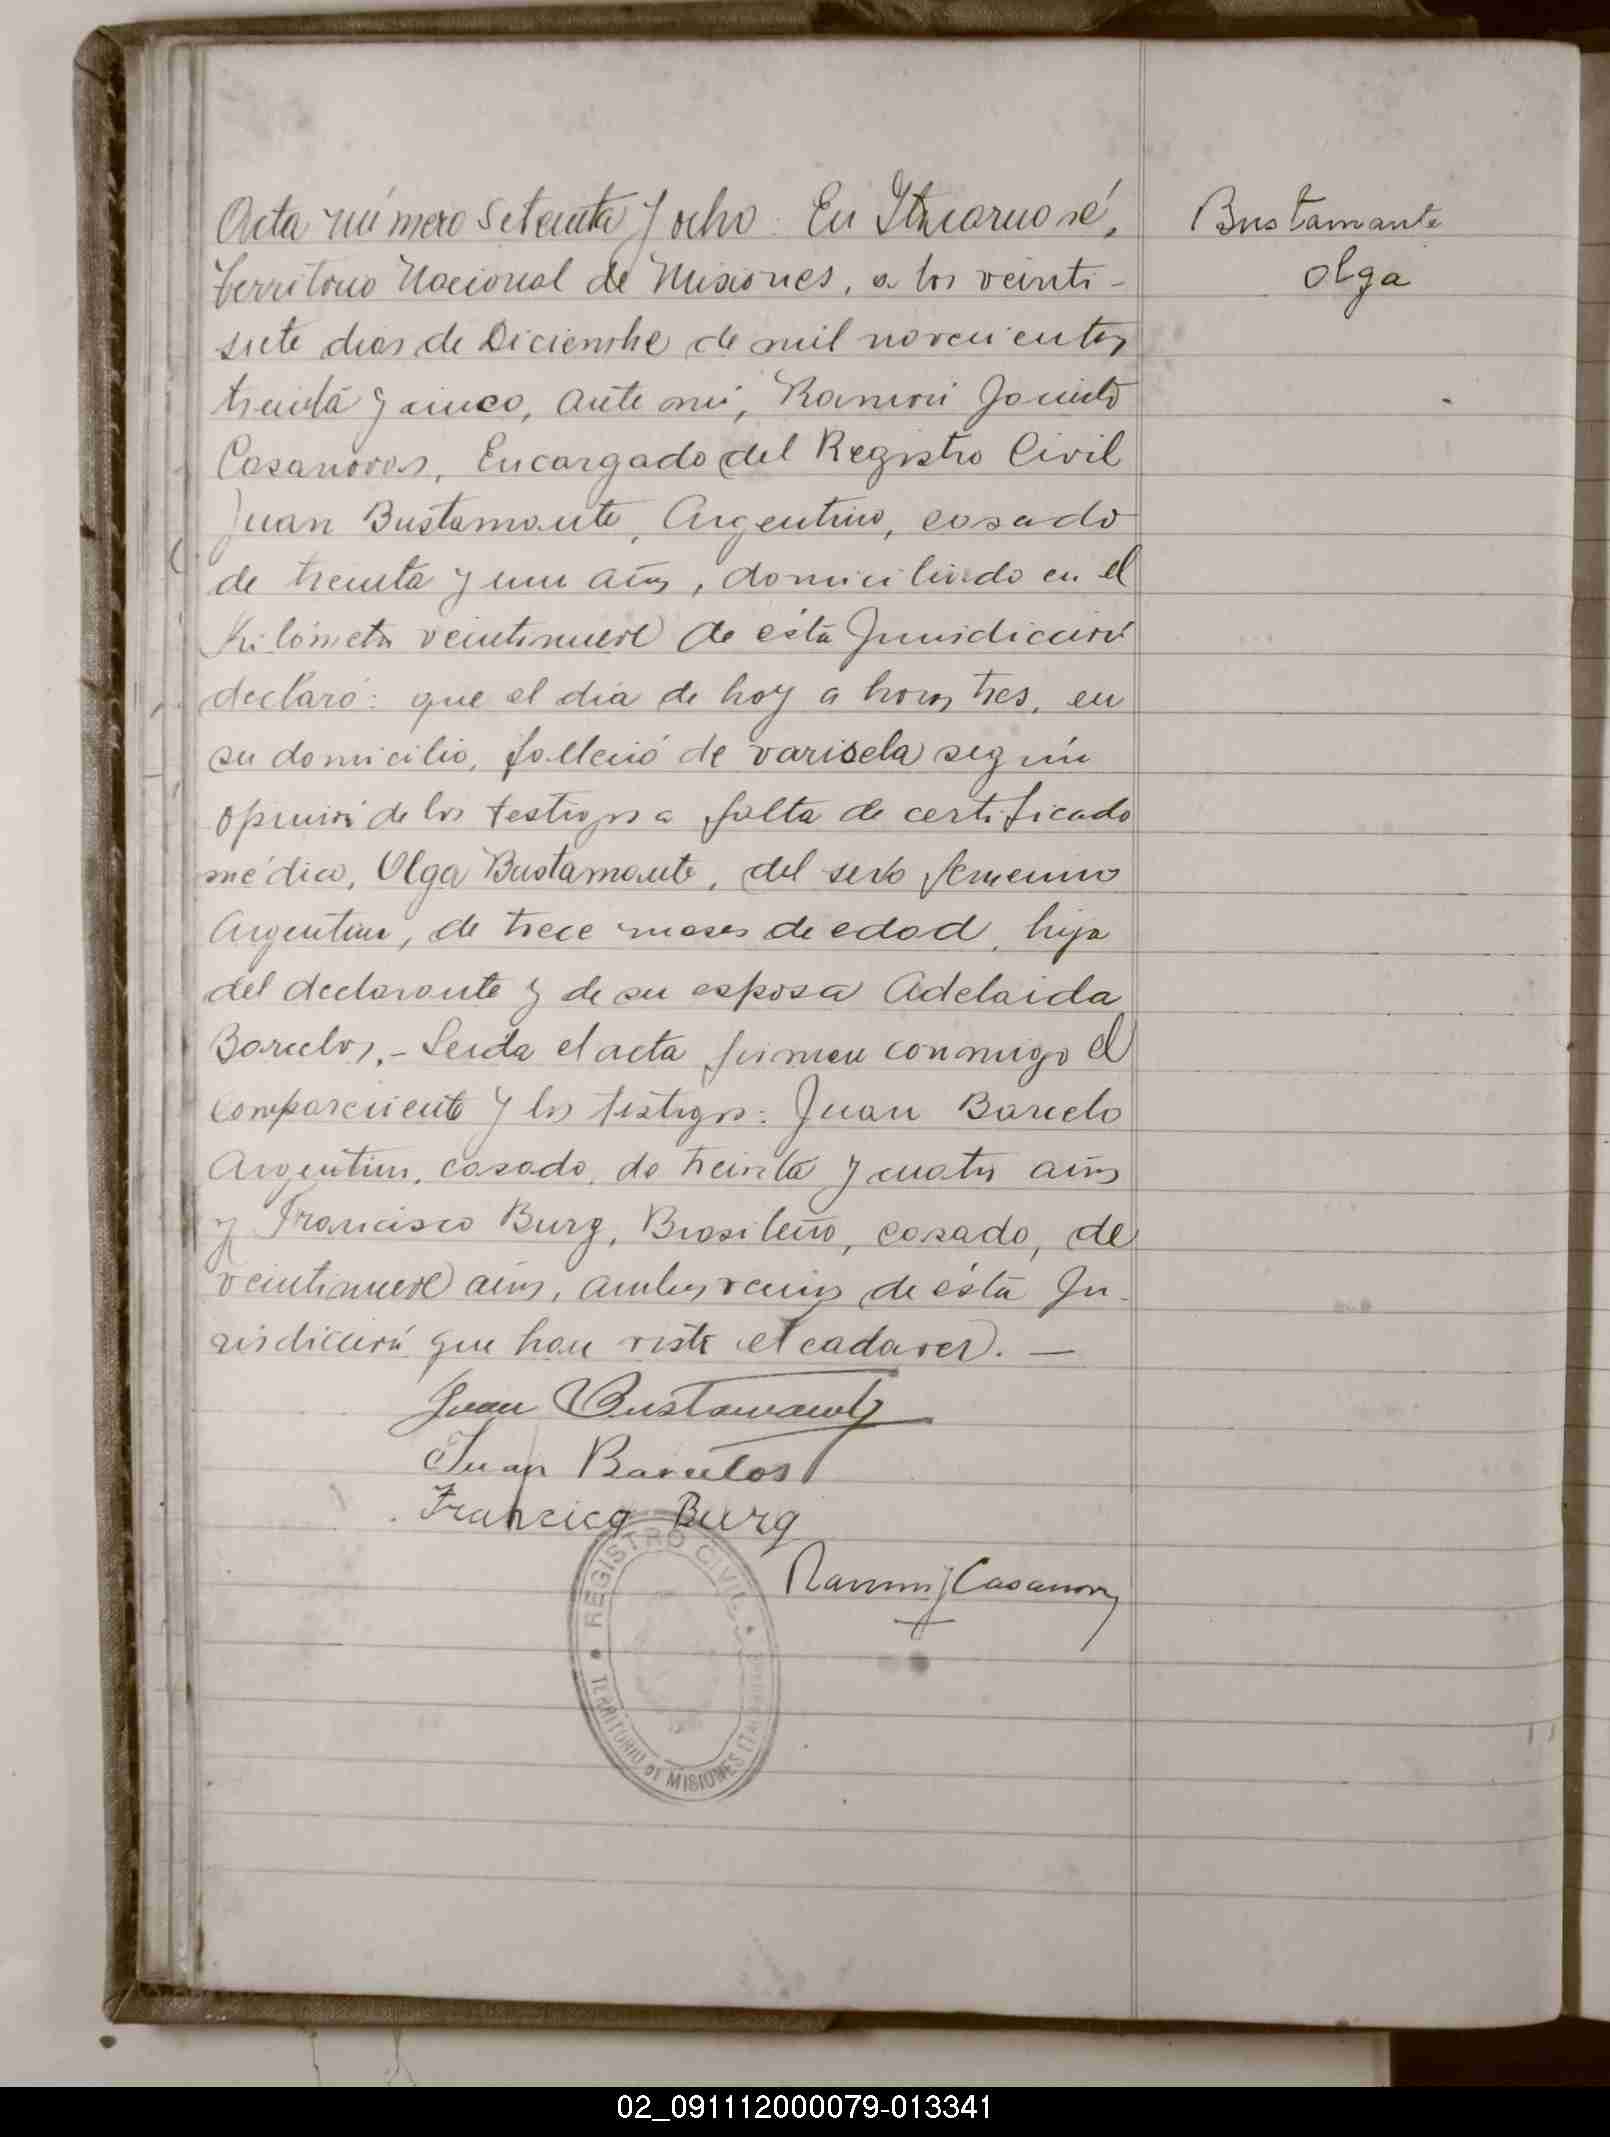 Acta número setenta y ocho. En Itacaruaré,
Territorio Nacional de Misiones, a los veinti-
siete dias de Diciembre de mil novecientos
treinta y cinco, ante mi, Ramón Jacinto
Casanovas, Encargado del Registro Civil
Juan Bustamante, Argentino, casado
de treinta y un años, domiciliado en el
Kilómetro veintinueve de ésta Jurisdicción
declaró: que el dia de hoy a horas tres, en
su domicilio, falleció de varisela según
opinión de los testigos a falta de certificado
médico, Olga Bustamante, del sexo femenino
Argentina, de trece meses de edad, hija
del declarante y de su esposa Adelaida
Barcelos.- Leida el acta firman conmigo el
compareciente y los testigos: Juan Barcelo
Argentino, casado, de treinta y cuatro años
y Francisco Burg, Brasileño, casado, de
veintinueve años, ambos vecinos de ésta Ju-
risdicción que han visto el cadaver. —
Juan Bustamante
Juan Barcelos
Francisco Burg
Ramón J Casanovas
REGISTRO CIVIL
TERRITORIO DE MISIONES
Bustamante
Olga
02_091112000079-013341